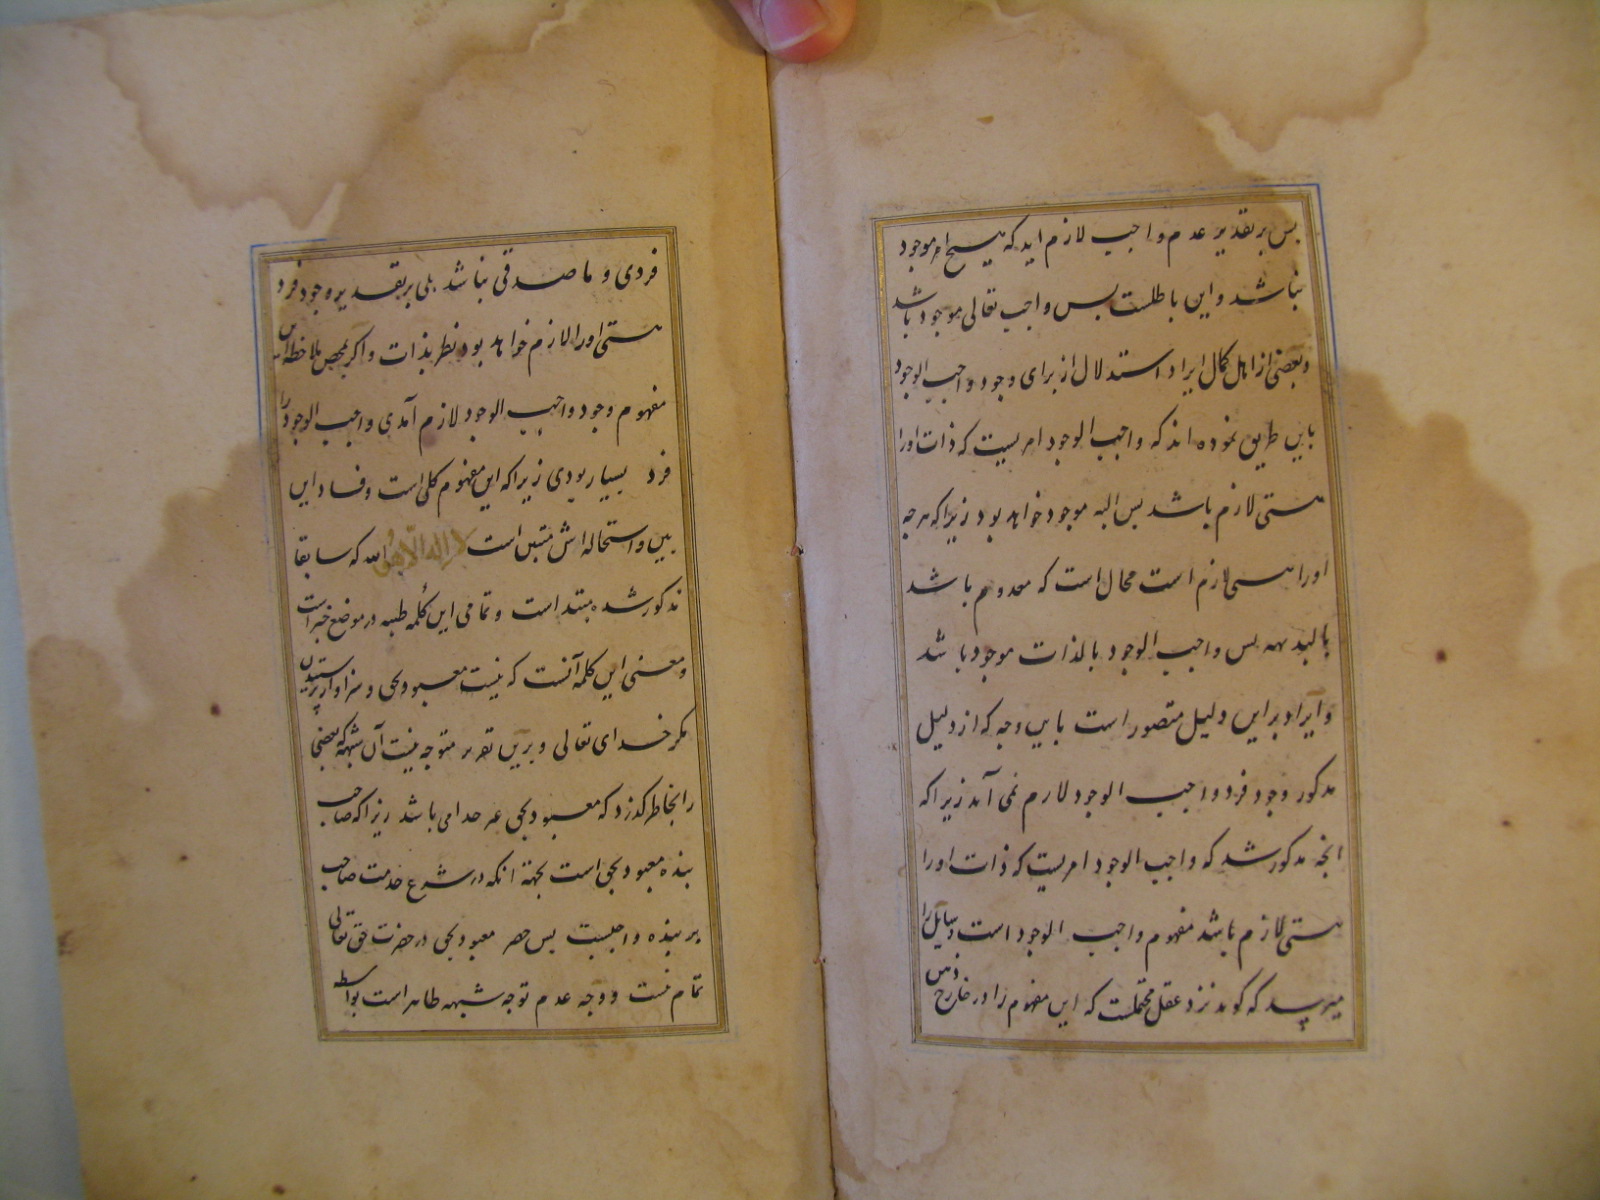 پس بر تقدیر عدم واجب لازم اید که هیچ امر موجود
نباشد و این باطلست پس واجب تعالی موجود باشد
و بعضی از اهل کمال ایراد استدلال از برای وجود واجب الوجود
باین طریق نموده اند که واجب الوجود امریست که ذات اورا
هستی لازم باشد پس البته موجود خواهد بود زیرا که هرچه
اورا هستی لازم است محال است که معدوم باشد
بالبدیهه پس واجب الوجود بالذات موجود باشد
و ایراد براین دلیل متصور است باین وجه که از دلیل
مذکور وجود فرد واجب الوجود لازم نمی آید زیرا که
انچه مذکور شد که واجب الوجود امریست که ذات اورا
هستی لازم باشد مفهوم واجب الوجود است و سایل را
میرسد که کوید نزد عقل محتملست که این مفهوم را در خارج و ذهن
فردی و ماصدقی نباشد بلی بر تقدیر وجود فرد
هستی اورا لازم خواهد بود نظر بذات و اکر بمحض ملاحظه این
مفهوم وجود واجب الوجود لازم آمدی واجب الوجود را
فرد بسیار بودی زیرا که این مفهوم کلی است و فساد این
بین و استحاله اش متبین است لا اله الا هو الله که سابقا
مذکور شده مبتدا است و تمامی این کلمه طیبه در موضع خبر است
و معنی این کلمه آنست که نیست معبود بحق و سزاوار پرستیدن
مکر خدای تعالی و برین تقدیر متوجه نیست آن شبهه که بعضی
را بخاطر کذرد که معبود بحق غیر خدا می باشد زیرا که صاحب
بنده معبود بحق است بجهة انکه در شرع خدمت صاحب
بر بنده واجبست پس حصر معبود بحق در حضرت حق تعالی
تمام نیست و وجه عدم توجه شبهه ظاهر است بواسطه